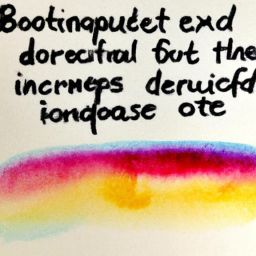 Bootinapudet exd
dorecifral fout the
incrmeps deruicfd
iongoase ote